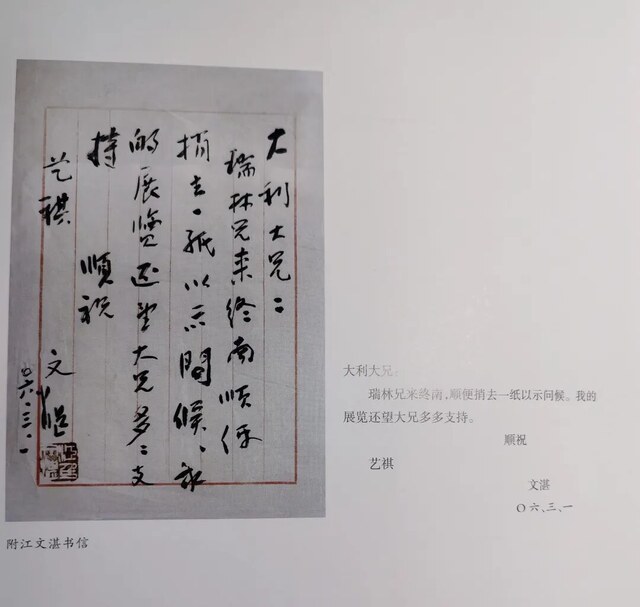 大利大兄：
瑞林兄来终南顺便
捎去一纸以示問候、我
的展览还望大兄多多支
持
順祝
艺祺
文湛
〇六、三、一
大利大兄：
瑞林兄来终南，顺便捎去一纸以示问候。我的
展览还望大兄多多支持。
顺祝
艺祺
文湛
〇六、三、一
附江文湛书信